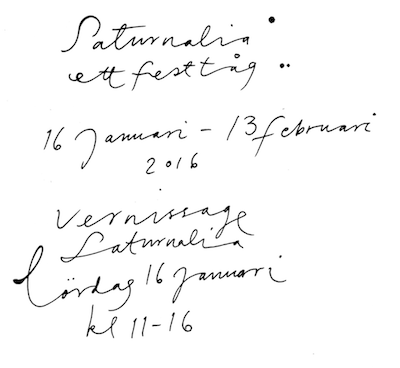 Saturnalia
ett festtåg ..
16 januari - 13 februari
2016
Vernissage
Saturnalia
lördag 16 januari
kl 11-16